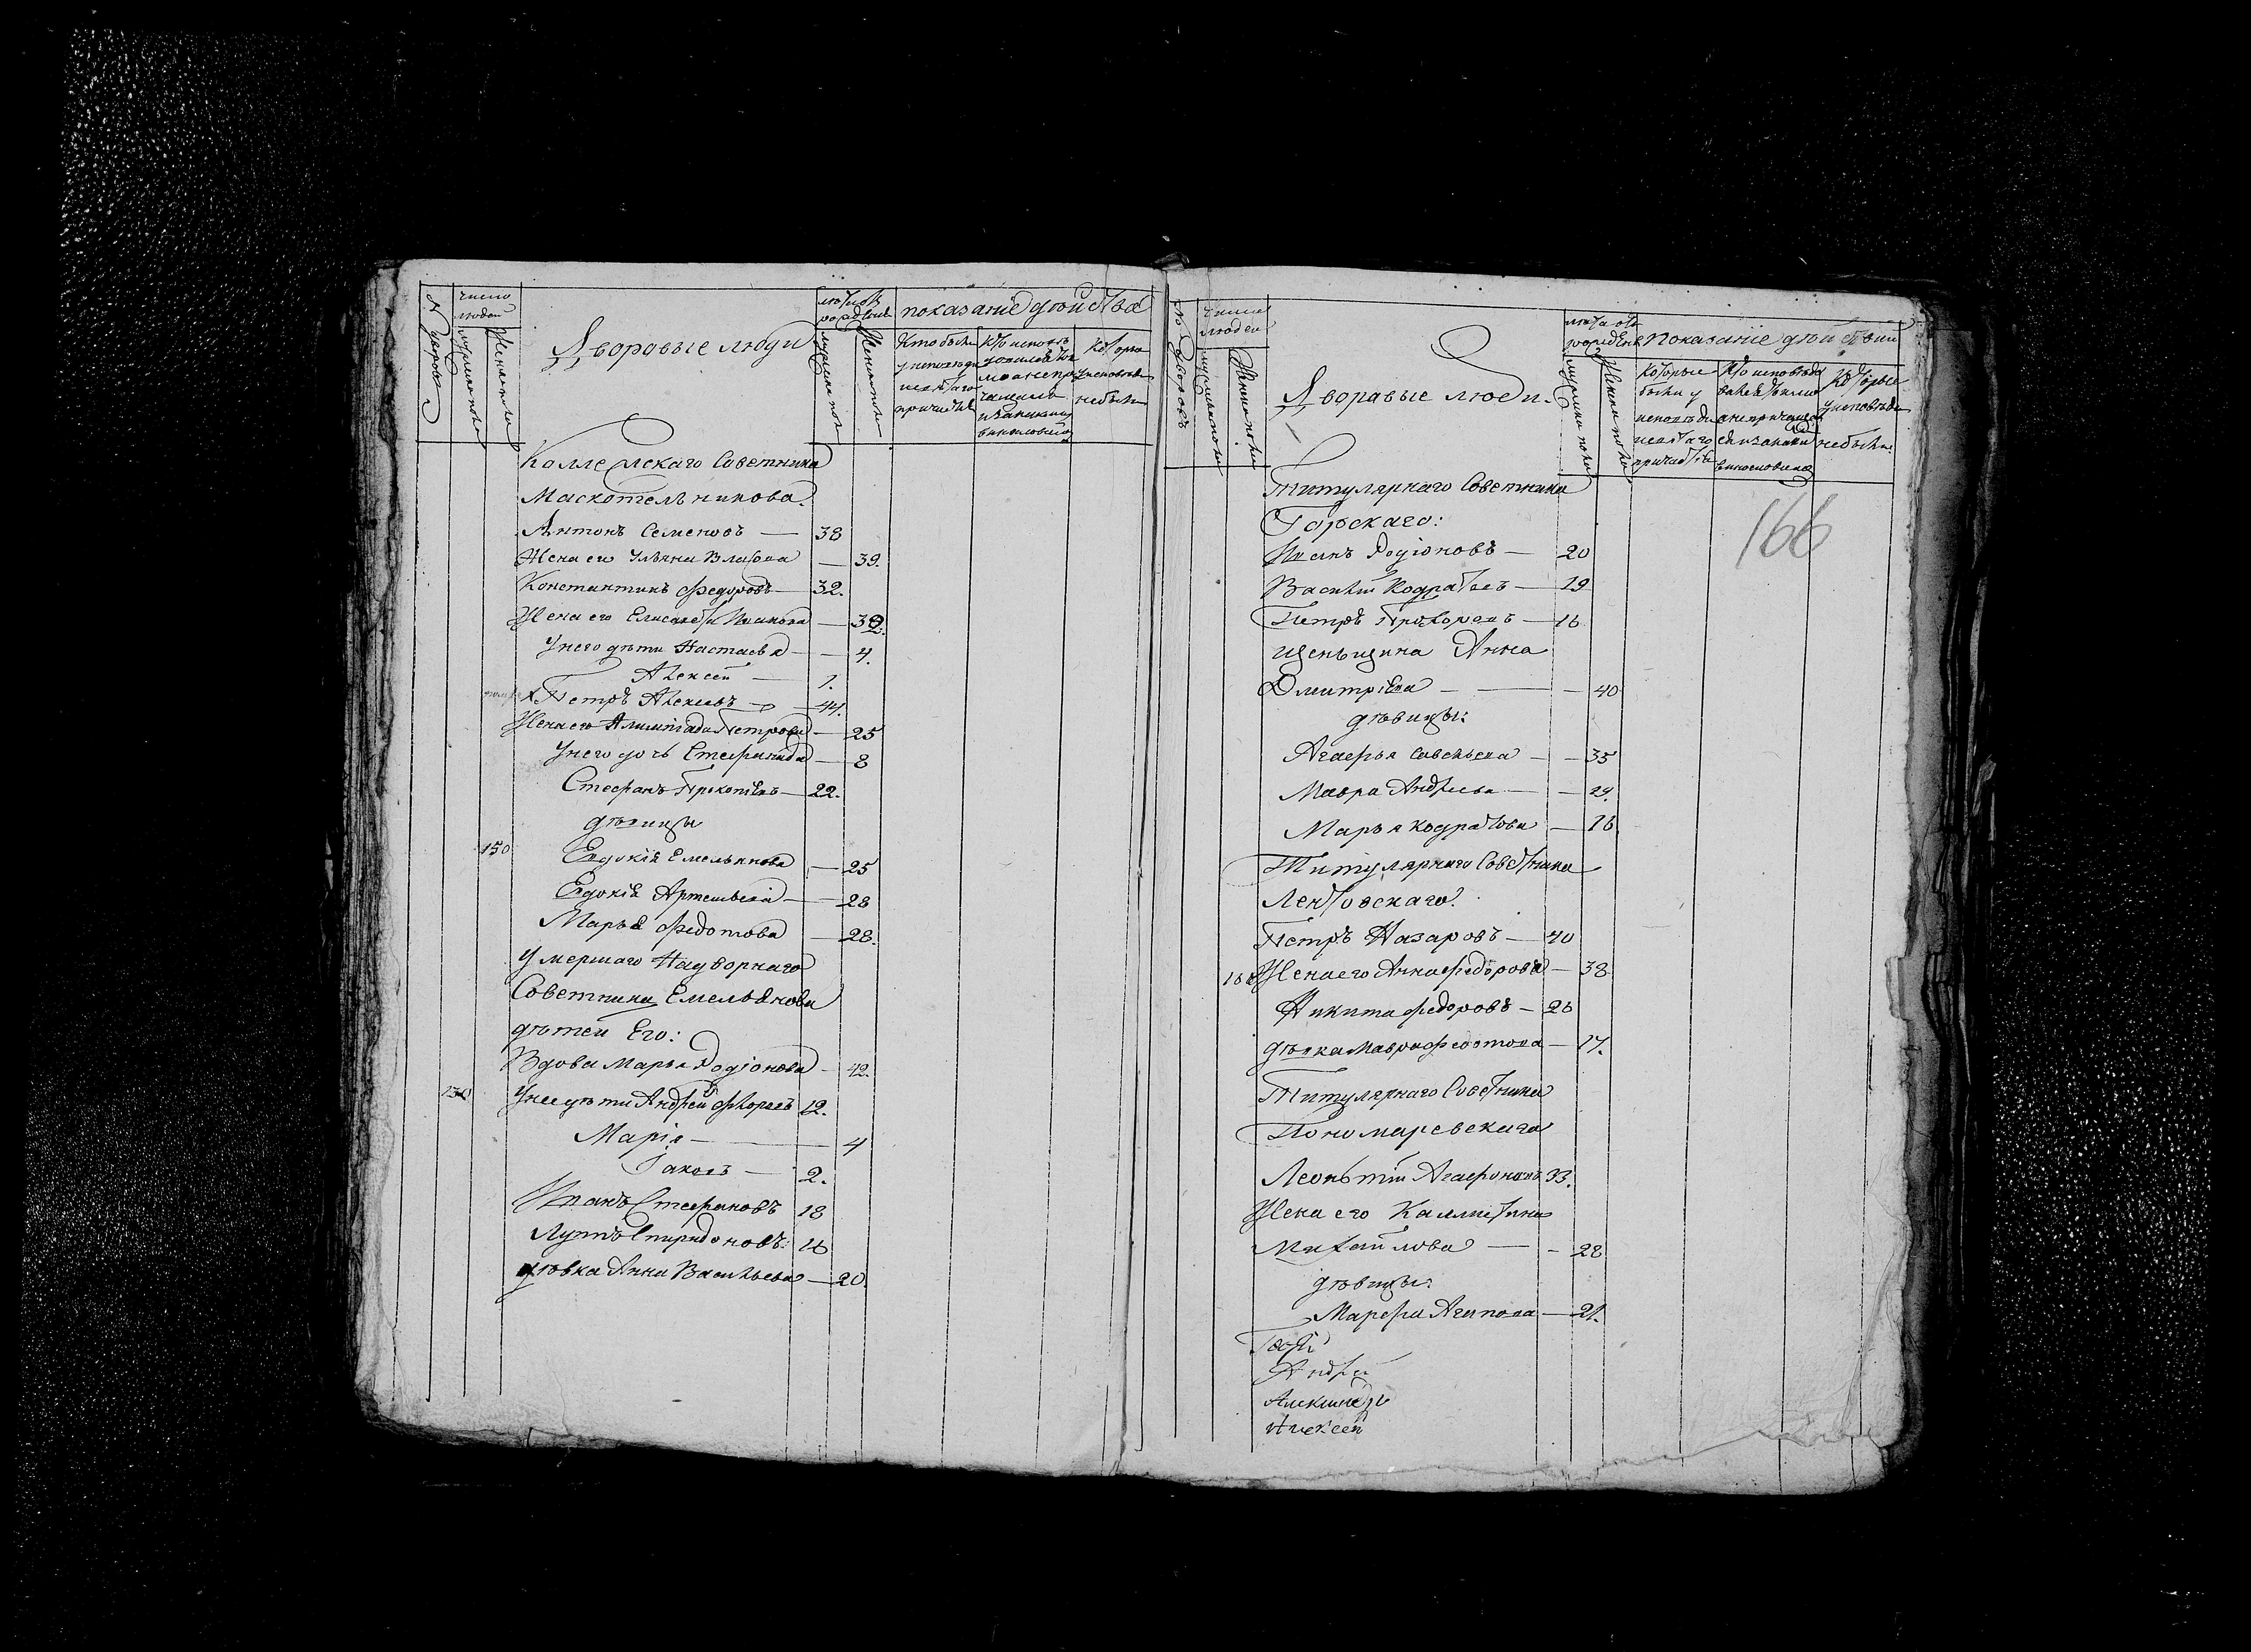 № дворовъ
число людей
мужска полу
женска полу
Дворовые люди
лѣта отъ рожденія
мужска полу
женска полу
показаніе дѣйства
Кто были
у исповѣди
и святаго
причастія
Кто исповѣ
Которы
у исповѣди
небыли
Коллежскаго Советника
Маскотельникова.
Антонъ Семеновъ — 38
Жена его Ульяна Власова — 39.
Константинъ Федоровъ — 32.
Жена его Елисаветъ Иванова —
У него дѣти Настасья — 4.
Алексей — 1.
Петръ Алексеевъ — 44.
Жена его Петрова — 25
У него дочь Стефанида — 8
Стефанъ Прокопіевъ — 22.
дѣвицы
150 Евдокія Емельянова — 25
Евдокія Артемьева — 28
Марья Федотова — 28.
Умершаго Надворнаго
Советника Емельянова
дѣтей Его:
Вдова Марья Родіонова — 42.
130 У нее дѣти Андрей 12.
Марія — 4
Іаковъ — 2.
Иванъ Стефановъ 18
Спиридоновъ 16
дѣвка Анна Васильева — 20.
№ дворовъ
число людей
мужска полу
женска полу
Дворавые люди.
лѣта отъ рожденія
мужска полу
женска полу
Показаніе дѣйствіи
Которые
были у
исповѣди
и святаго
причастія
Которые
у исповѣди
небыли
166
Титулярнаго Советника
Горскаго:
Иванъ Родіоновъ — 20
Василій Кодратьевъ — 19
Петръ Прохоровъ — 16
женьщина Анна
Дмитріева — 40
дѣвицы:
Агафья Савельева — 35
Мавра Андреева — 29.
Марья Кодратова — 16
Титулярнаго Советника
Лентовскаго.
Петръ Назаровъ — 40
Жена его Анна Федорова — 38
Никита Федоровъ — 26
дѣвка Мавра Федотова — 17.
Титулярнаго Советника
Пономаревскаго
Леоньтій Агафоновъ 33.
Жена его
Михайлова — 28
дѣвицы:
Марфа Агапова — 21.
Андрей
Алексей